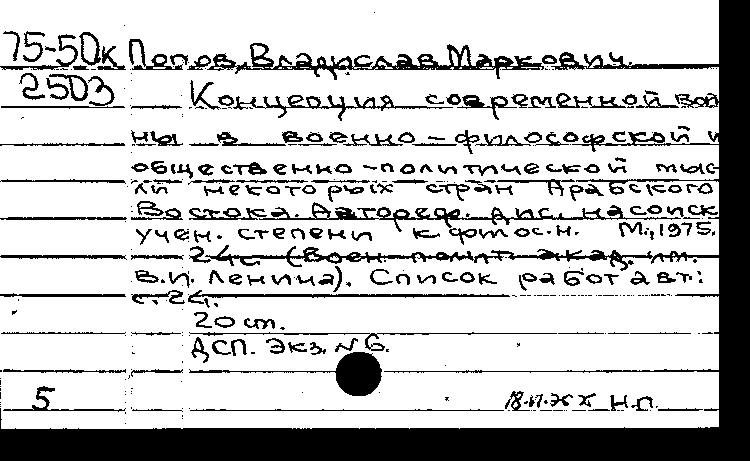 75-50к Попов, Владислав Маркович.
2503 Концепция современной вой
ны в военно-философской и
общественно-политической мыс
ли некоторых стран Арабского
Востока. Автореф. дис. на соиск
учен. степени к.филос.н. М., 1975.
24с. (Воен.-полит. акад. им.
В.И. Ленина). Список работ авт.:
с. 24.
20 cm.
ДСП. Экз. № 6.
5 Н.П.